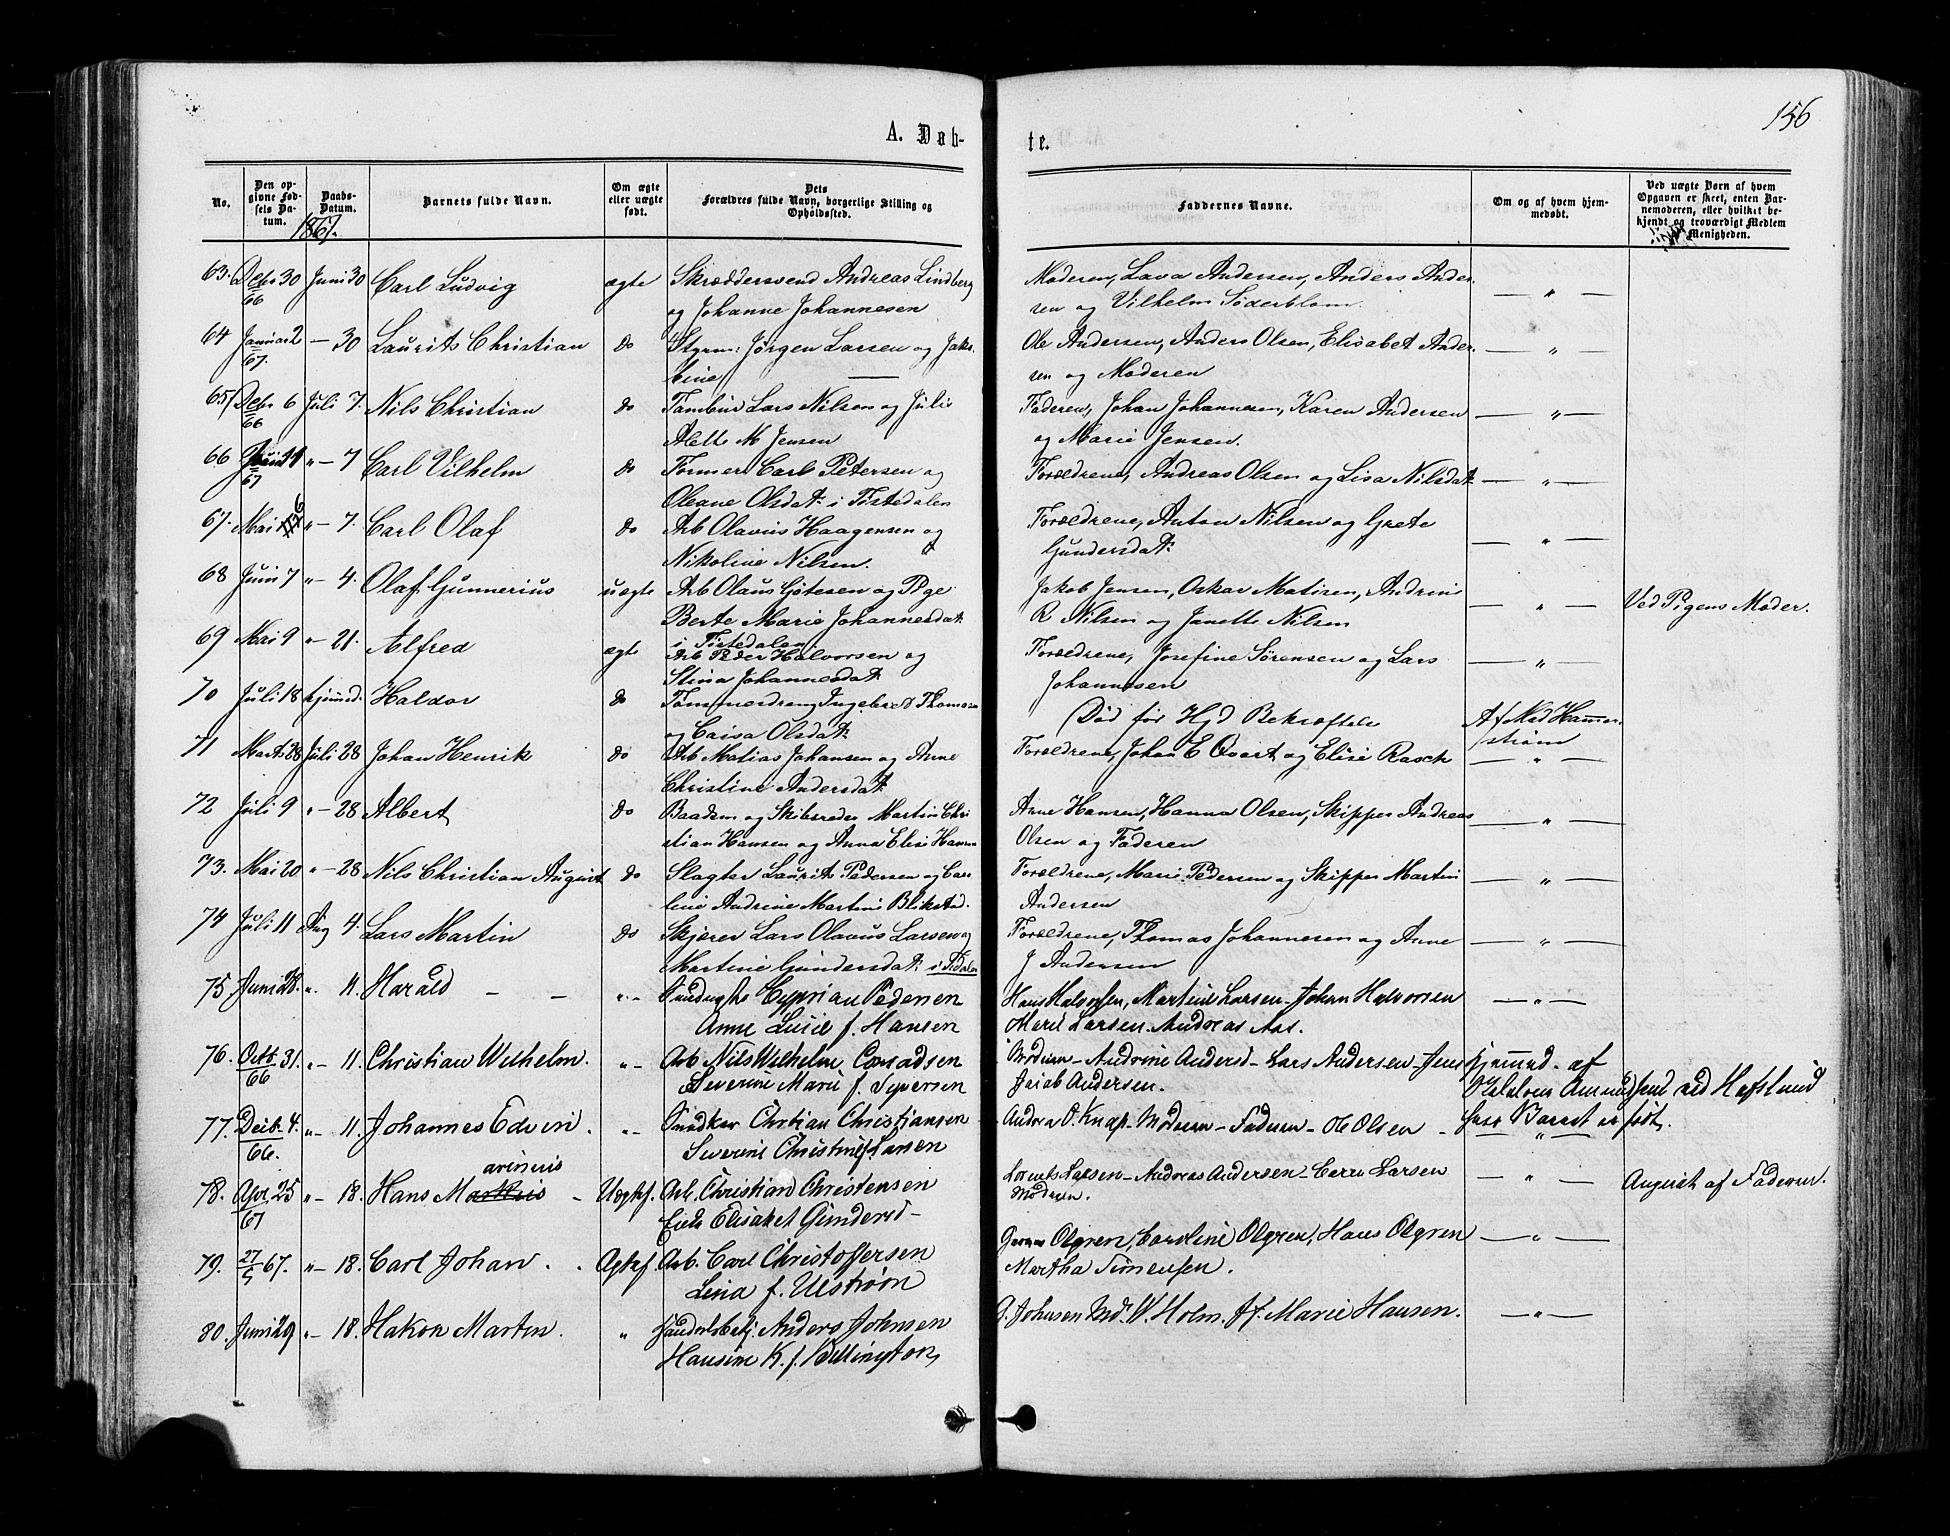 156
A. Døb-
te.
No.
Den op-
givne Fød-
sels Da-
tum.
Daabs-
Datum.
Barnets fulde Navn.
Om ægte
eller uægte
født.
Dets
Forældres fulde Navn, borgerlige Stilling og
Opholdssted.
Faddernes Navne.
Om og af hvem hjem-
medøbt.
Ved uægte Børn af hvem
Opgaven er skeet, enten Bar-
nemoderen, eller hvilket be-
kjendt og troværdigt Medlem
Menigheden.
1867.
63. Decbr 30 Juni 30 Carl Ludvig ægte Skræddersvend Andreas Lindberg Moderen, Lava Andersen, Anders Ander- — " —
66 og Johanne Johannesen sen og Vilhelm Söderblom.
64 Januar 2 — 30 Laurits Christian do Styrm: Jørgen Larsen og Jako- Ole Andersen, Anders Olsen, Elisabet Ander- — " —
67. bine sen og Moderen
65 Decbr 6 Juli 7. Nils Christian do Tambur Lars Nilsen og Juli Faderen, Johan Johannesen, Karen Andersen — " —
66 Alette M Jensen og Marie Jensen.
66 " — 7 Carl Vilhelm do Former Carl Petersen og Forældrene, Andreas Olsen og Lisa Nilsdat: — " —
67 Oleane Olsdat: i Tistedalen
67. Mai 26 " — 7. Carl Olaf do Arb Olavus Haagensen og Forældrene, Anton Nilsen og Grete — " —
Nikoline Nilsen. Gundersdat:
68 Juni 7 " — 4. Olaf Gunnerius uægte Arb Olaus Gjøtesen og Pige Jakob Jensen, Oskar Matisen, Andrine — " — Ved Pigens Moder.
Berte Marie Johannesdat: R Nilsen og Janette Nilsen
i Tistedalen
69 Mai 9 " — 21. Alfred ægte Arb Peder Halvorsen og Forældrene, Josefine Sørensen og Lars — " —
Stina Johannesdat: Johannesen
70 Juli 18 hjemmed. Haldor do Tømmerdreng Ingebret Thomasen Død før Hjd Bekræftelse Af Mad Hammer-
og Caisa Olsdat: strøm
71 Marts 28 Juli 28 Johan Henrik do Arb Matias Johansen og Anne Forældrene, Johan E Qvart og Elise Rasch — " —
Christine Andersdat:
72 Juli 9 " — 28 Albert do Baadsm og Skibsreder Martin Chri- Anne Hansen, Hanna Olsen, Skipper Andreas — " —
stian Hansen og Anna Elise Hansen Olsen og Faderen
73. Mai 20 " — 28 Nils Christian August do Slagter Laurits Pedersen og Caro- Forældrene, Marie Pedersen og Skipper Martin — " —
line Andrine Martine Blikstad. Andersen
74 Juli 11 Aug 4. Lars Martin do Skjærer Lars Olavus Larsen og Forældrene, Thomas Johannesen og Anne — " —
Martine Gundersdat: i Tidalen J Andersen
75 Juni 28. " 11. Harald — — " - Cyprian Pedersen Hans Halvorsen, Martine Larsen - Johan Halvorsen — " —
Anne Lucie f. Hansen Marie Larsen - Andreas Aas.
76. Octb. 31. " - 11. Christian Wilhelm. " - Arb Nils Wilhelm Conradsen Moderen - Andrine Andersd - Lars Andersen - Jens Hjemmd. af
66 Severine Marie f. Syversen Jacob Andersen. Halvor Amundsen ved Hafslund
77. Decb. 4. " - 11. Johannes Edvin. " - Snedker Chrtian Christiansen Andrea O. Knap - Moderen - Faderen - Ole Olsen - hvor Barnet er født.
66. Severine Christine f. Larsen — " —
arinius
78. Apr. 25 " - 18. Hans Markus - Uægtef. Arb. Christian Christensen Lorents Larsen - Andreas Andersen - Larsen — " — Angivet af Faderen.
67 Elisabet Gundersd - Moderen.
79. 27/5 67. " - 18. Carl Johan. Ægtef. Arb. Carl Christoffersen Olgren, Caroline Olgren, Hans Olgren — " —
Lina f. Ulstrøm Martha Simensen.
80. Juni 29 " - 18. Hakon Martin. " Handelsbetj. Anders Johnsen G. Johnsen Md. W. Holm. Fr. Marie Hansen. — " —
Hansine K. f. Billington